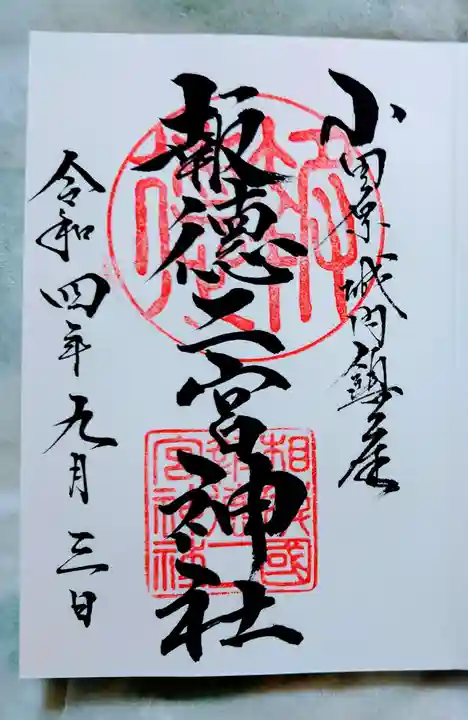 小田原城内鎮座
報徳二宮神社
令和四年九月三日
相模國
報徳二
宮神社